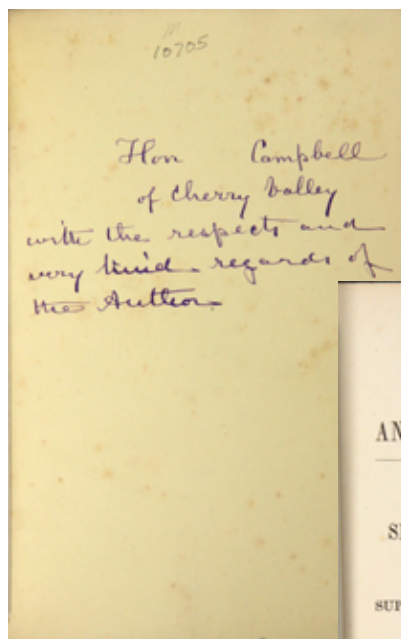 10705
Hon Campbell
of Cherry Valley
with the respects and
very kind regards of
the Author
AN
SUP